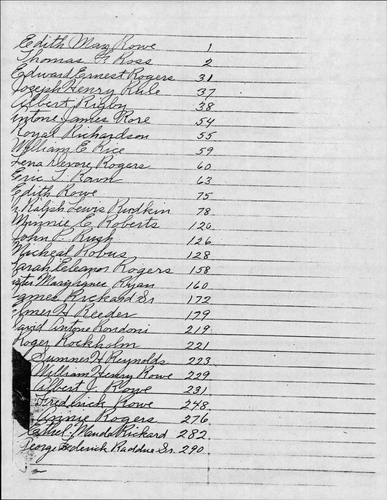 Edith May Rowe 1
Thomas F Ross 2
Edward Ernest Rogers 31
Joseph Henry Rule 37
Albert Rigby 38
Antone James Rore 54
Royal Richardson 55
William E Rice 59
Lena Devore Rogers 60
Eric T. 63
Edith Rowe 75
Ralph Lewis Rudkin 78
Minnie E Roberts 120
John P. Rush 126
Micheal Robus 128
Sarah Eleanor Rogers 158
Ryan 160
James Rickard Sr 172
Elmer H Reeder 179
David Antone Rondoni 219
Roger Rockholm 221
Sumner H Reynolds 223
William Henry Rowe 229
Albert J. Rowe 231
Frederick Rowe 248
Annie Rogers 276
Maude Rickard 282
George Frederick Raddue Sr. 290